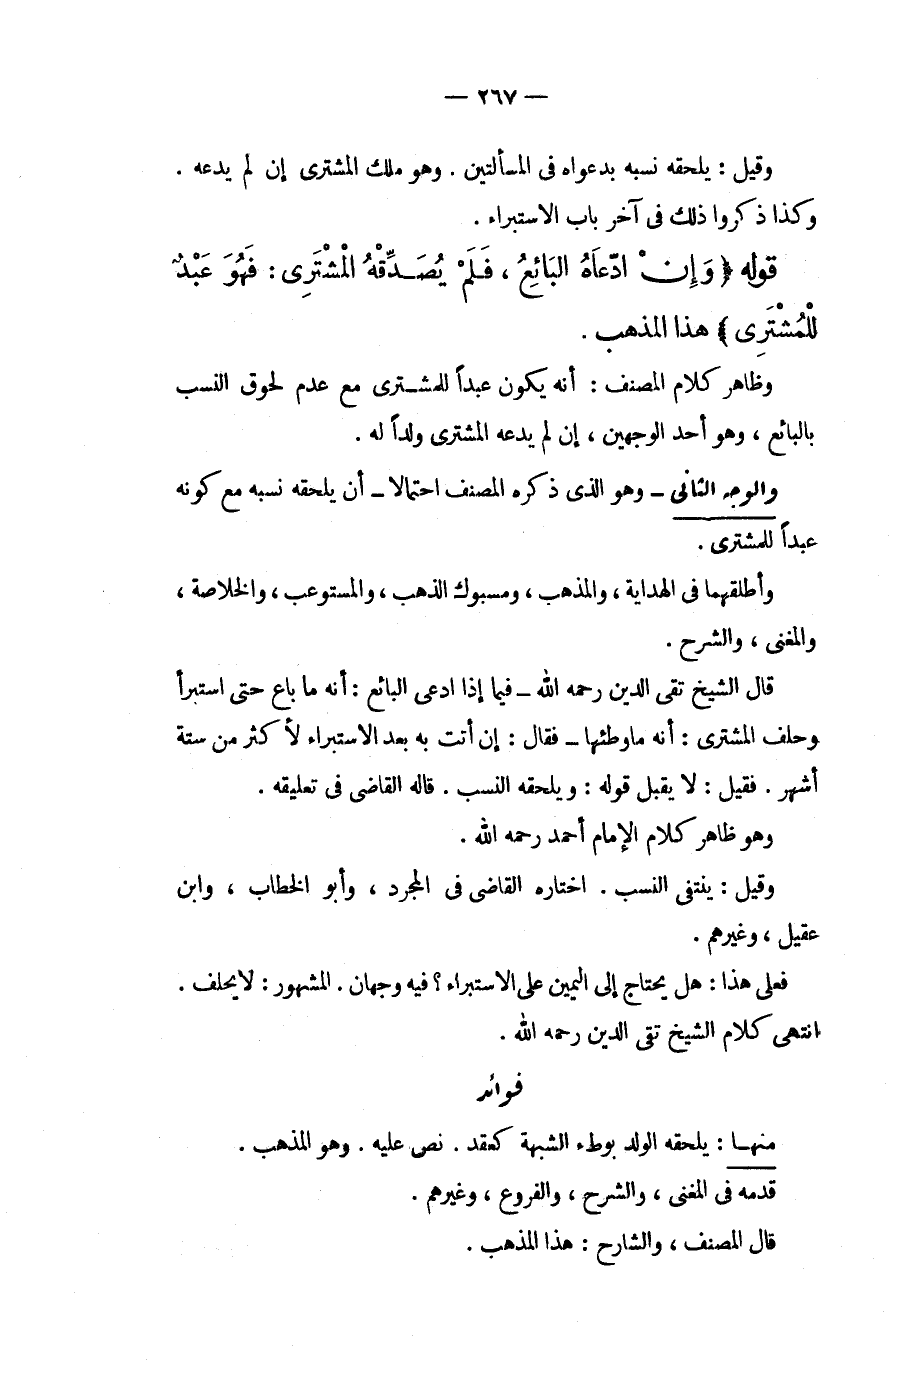 — ٢٦٧ —
وقيل : يلحقه نسبه بدعواه فى المسألتين . وهو ملك المشترى إن لم يدعه .
وكذا ذكروا ذلك فى آخر باب الاستبراء .
قوله ﴿ وَإِنْ ادّعاَهُ البَائِعُ ، فَلَمْ يُصَدِّقْهُ الْمُشْتَرِى : فَهُوَ عَبْدٌ
لِلْمُشْتَرِى ﴾ هذا المذهب .
وظاهر كلام المصنف : أنه يكون عبداً للمشترى مع عدم لحوق النسب
بالبائع ، وهو أحد الوجهين ، إن لم يدعه المشترى ولداً له .
والوجه الثانى ــ وهو الذى ذكره المصنف احتمالا ــ أن يلحقه نسبه مع كونه
عبداً للمشترى .
وأطلقهما فى الهداية ، والمذهب ، ومسبوك الذهب ، والمستوعب ، والخلاصة ،
والمغنى ، والشرح .
قال الشيخ تقى الدين رحمه الله ــ فيما إذا ادعى البائع : أنه ما باع حتى استبرأ
وحلف المشترى : أنه ماوطئها ــ فقال : إن أتت به بعد الاستبراء لأكثر من ستة
أشهر . فقيل : لا يقبل قوله : ويلحقه النسب . قاله القاضى فى تعليقه .
وهو ظاهر كلام الإمام أحمد رحمه الله .
وقيل : ينتفى النسب . اختاره القاضى فى المجرد ، وأبو الخطاب ، وابن
عقيل ، وغيرهم .
فعلى هذا : هل يحتاج إلى اليمين على الاستبراء ؟ فيه وجهان . المشهور : لايحلف .
انتهى كلام الشيخ تقى الدين رحمه الله .
فوائد
منها : يلحقه الولد بوطء الشبهة كعقد . نص عليه . وهو المذهب .
قدمه فى المغنى ، والشرح ، والفروع ، وغيرهم .
قال المصنف ، والشارح : هذا المذهب .